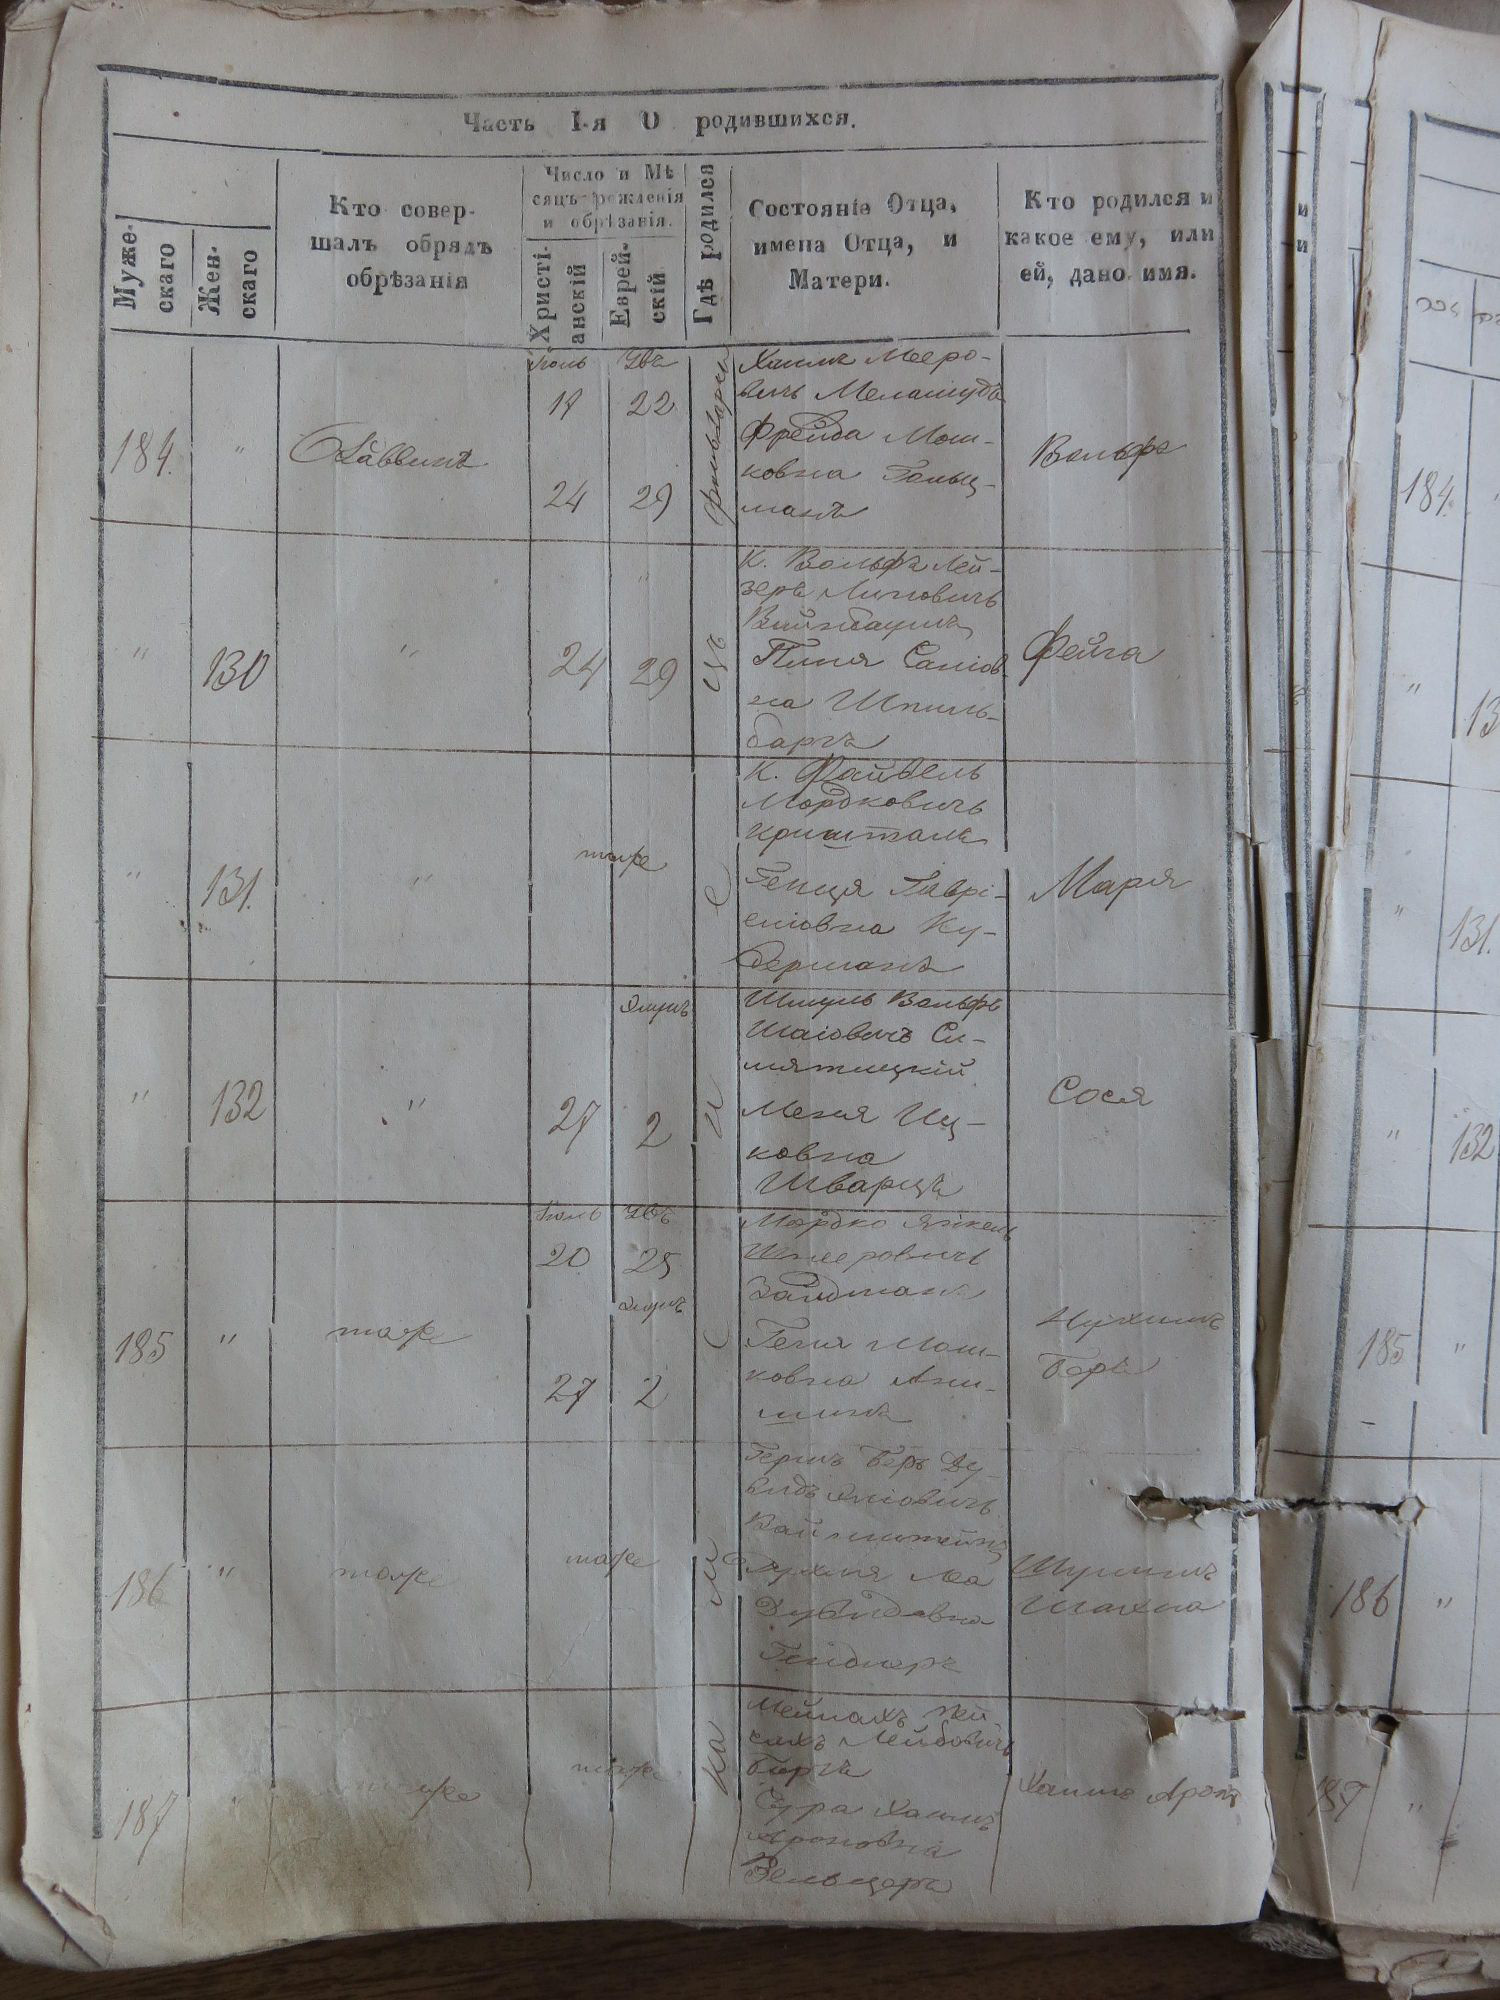 Часть I-я О родившихся.
Муже-
скаго
Жен-
скаго
Кто совер-
шалъ обрядъ
обрѣзанія
Число и Мѣ
сяцъ рожденія
и обрѣзанія.
Христі-
анскій
Еврей-
скій
Гдѣ родился
Состояніе Отца,
имена Отца, и
Матери.
Кто родился и
какое ему, или
ей, дано имя.
184.
"
Іюль
17
24
22
29
Хаимъ Меро-
вичъ
Фрейда Мош-
ковна Гольц-
манъ
Вольфъ
"
130
"
24
29
"
К. Вольфъ Лей-
зеръ
Вайнбаумъ
Сапіов-
на Шпиль-
бергъ
Фейга
"
131.
"
тоже
К. Файвель
Мордковичъ
Кришталъ
Гавріе-
еліовна Ку-
перманъ
Марія
"
132
"
27
2
Шмуль Вольфъ
Шаіовичъ Се-
мятицкій
Меня Иц-
ковна
Шварцъ
Сося
185
"
тоже
Іюль
20
27
25
2
Мордко Янкель
Шмеровичъ
Зайдманъ
Геня Мош-
ковна
Нухимъ
Беръ
186
"
тоже
тоже
Гершъ Беръ Ду-
видъ
Вайнштейнъ
Лея
Дувидовна
Шулимъ
Шахна
187
"
тоже
тоже
Лейбовичъ
Бергъ
Сура Хаимъ
Ароновна
Зельцеръ
Хаимъ Аронъ
184.
"
"
13
"
131.
"
132
185
"
186
"
187
"